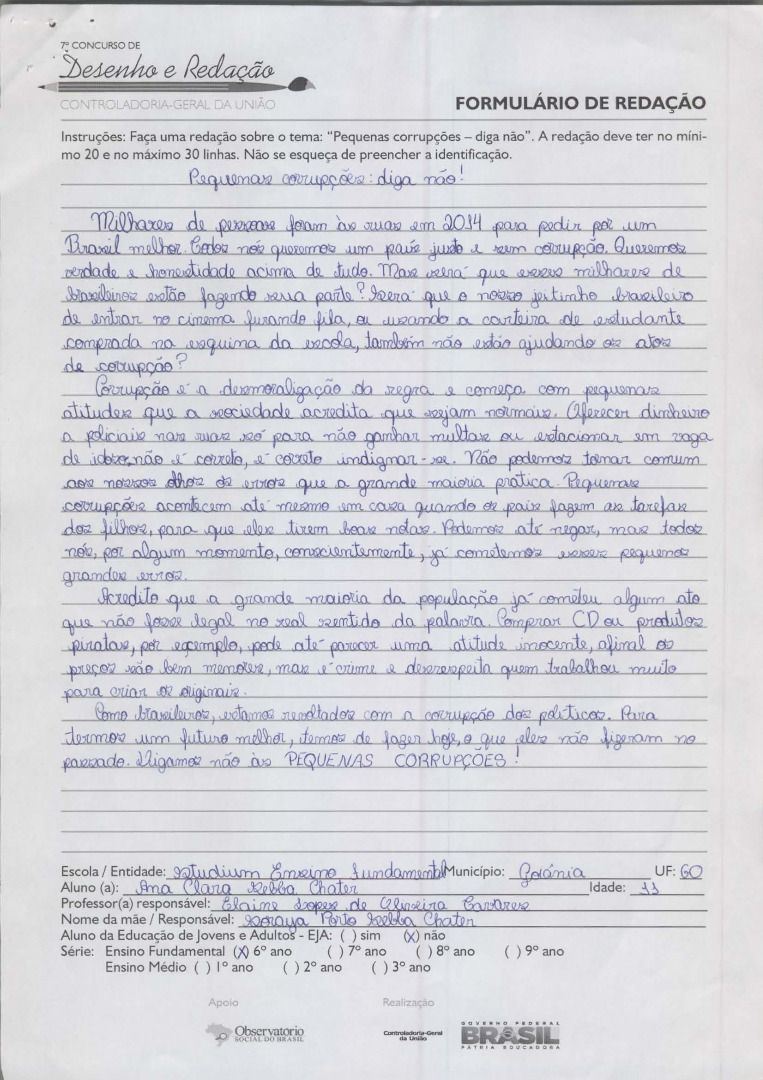 7º CONCURSO DE
Desenho e Redação
CONTROLADORIA-GERAL DA UNIÃO
FORMULÁRIO DE REDAÇÃO
Instruções: Faça uma redação sobre o tema: “Pequenas corrupções – diga não”. A redação deve ter no míni-
mo 20 e no máximo 30 linhas. Não se esqueça de preencher a identificação.
Pequenas corrupções: diga não!
Milhares de pessoas foram às ruas em 2014 para pedir por um
Brasil melhor. Todos nós queremos um país justo e sem corrupção. Queremos
verdade e honestidade acima de tudo. Mas será que esses milhares de
brasileiros estão fazendo sua parte? Será que o nosso jeitinho brasileiro
de entrar no cinema furando fila, ou usando a carteira de estudante
comprada na esquina da escola, também não estão ajudando os atos
de corrupção?
Corrupção é a desmoralização da regra e começa com pequenas
atitudes que a sociedade acredita que sejam normais. Oferecer dinheiro
a policiais nas ruas só para não ganhar multas ou estacionar em vaga
de idoso, não é correto, é correto indignar-se. Não podemos tornar comum
aos nossos olhos os erros que a grande maioria pratica. Pequenas
corrupções acontecem até mesmo em casa quando os pais fazem as tarefas
dos filhos, para que eles tirem boas notas. Podemos até negar, mas todos
nós, por algum momento, conscientemente, já cometemos esses pequenos
grandes erros.
Acredito que a grande maioria da população já cometeu algum ato
que não fosse legal no real sentido da palavra. Comprar CD ou produtos
piratas, por exemplo, pode até parecer uma atitude inocente, afinal os
preços são bem menores, mas é crime e desrespeita quem trabalhou muito
para criar os originais.
Como brasileiros, estamos revoltados com a corrupção dos políticos. Para
termos um futuro melhor, temos de fazer hoje, o que eles não fizeram no
passado. Digamos não às PEQUENAS CORRUPÇÕES!
Escola / Entidade: Studium Ensino Fundamental Município: Goiânia UF: GO
Aluno (a): Ana Clara Sebba Chater Idade: 11
Professor(a) responsável: Elaine Lopes de Oliveira Tavares
Nome da mãe / Responsável: Soraya Porto Sebba Chater
Aluno da Educação de Jovens e Adultos - EJA: ( ) sim (X) não
Série: Ensino Fundamental (X) 6º ano ( ) 7º ano ( ) 8º ano ( ) 9º ano
Ensino Médio ( ) 1º ano ( ) 2º ano ( ) 3º ano
Apoio Realização
Observatório
SOCIAL DO BRASIL
Controladoria-Geral
da União
GOVERNO FEDERAL
BRASIL
PÁTRIA EDUCADORA